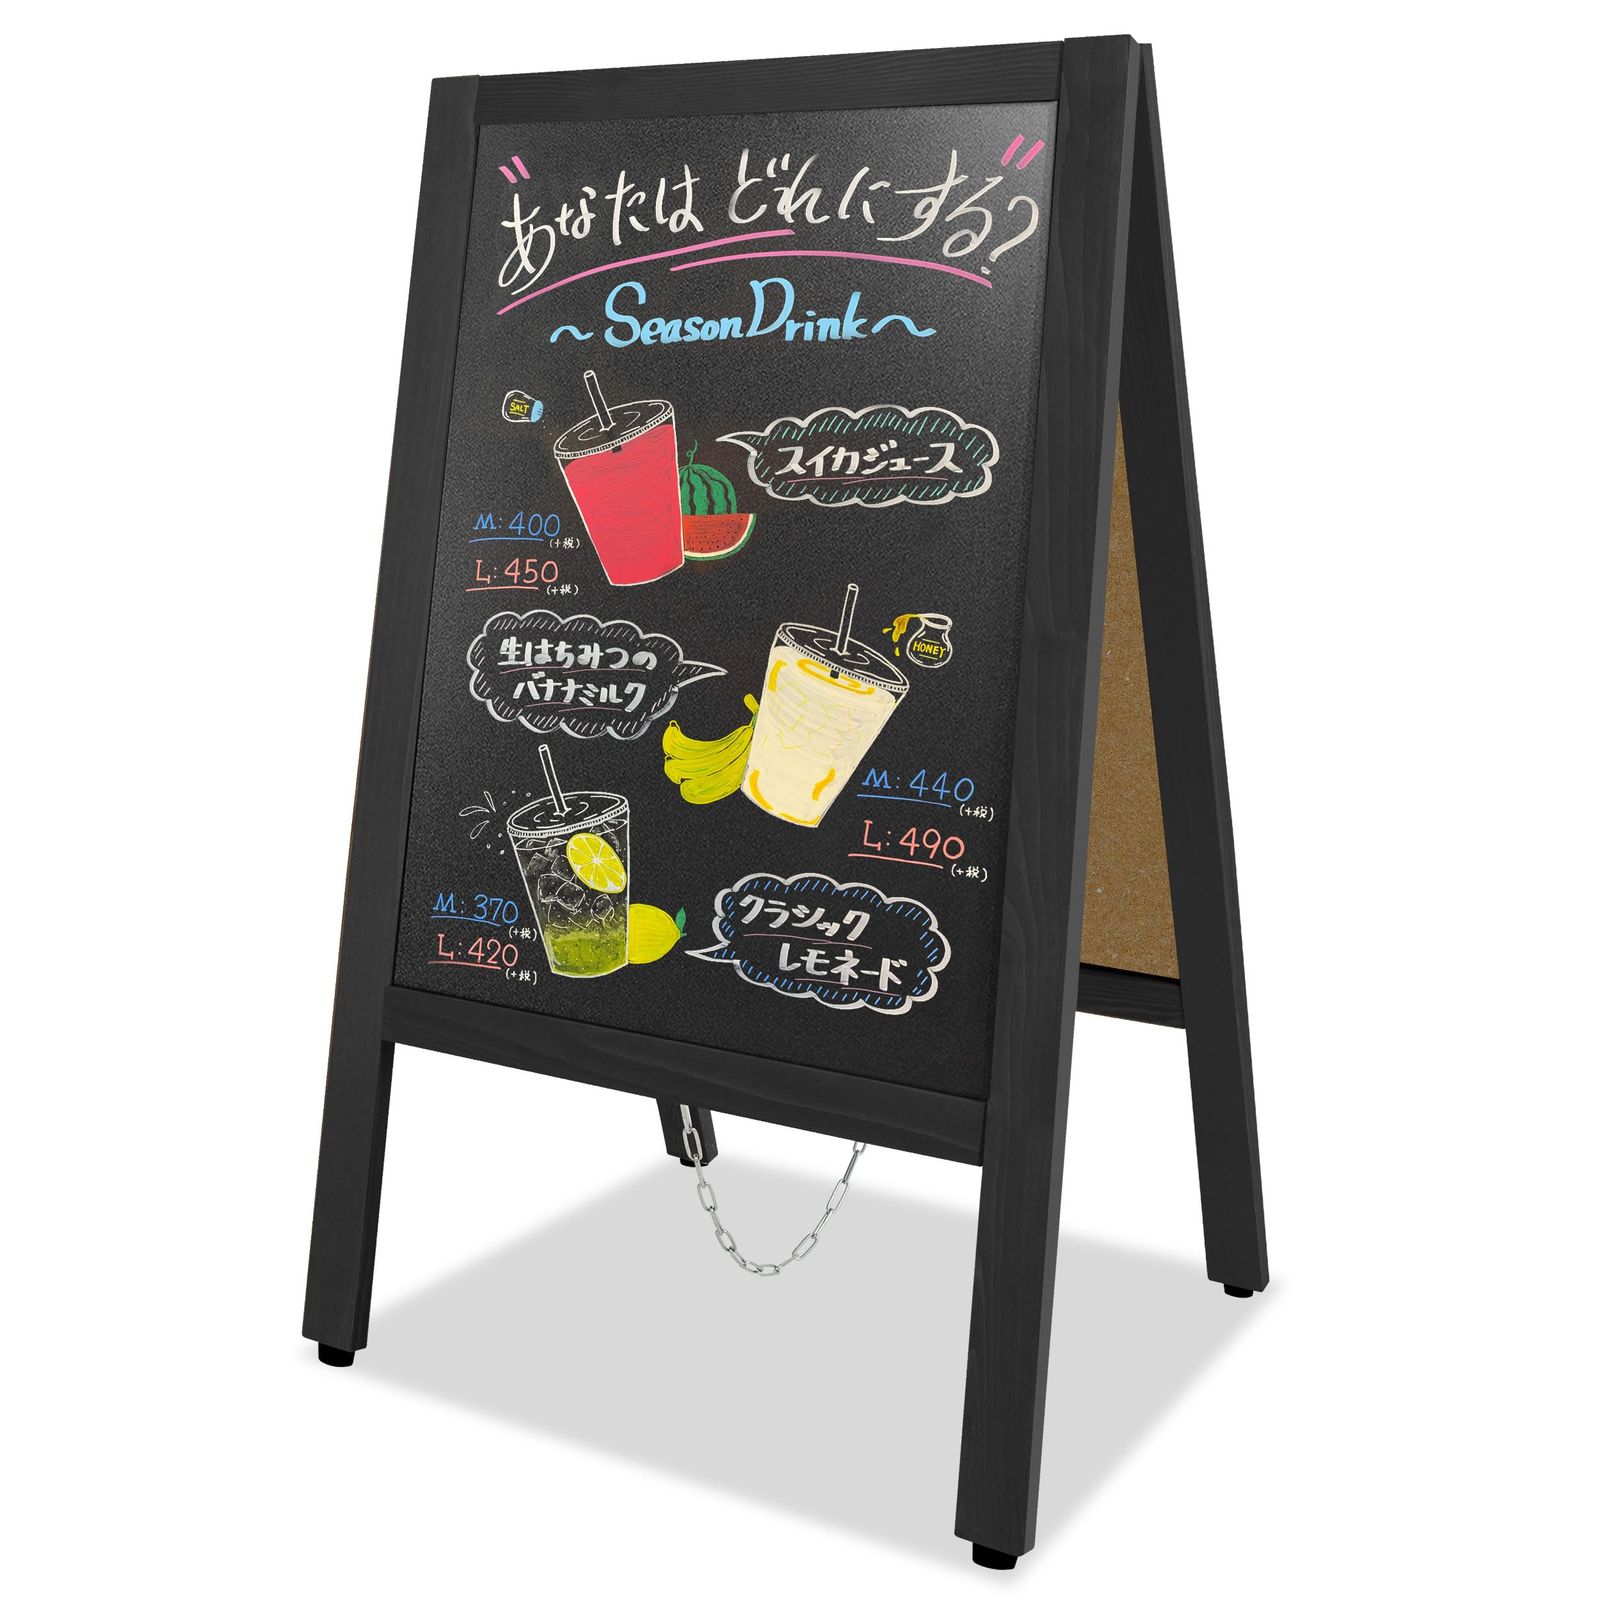 "あなたは どれにする"?
～Season Drink～
SALT
スイカジュース
M:400
(+税)
L:450
(+税)
生はちみつの
バナナミルク
HONEY
M:440
(+税)
L:490
(+税)
M:370
(+税)
L:420
(+税)
クラシック
レモネード